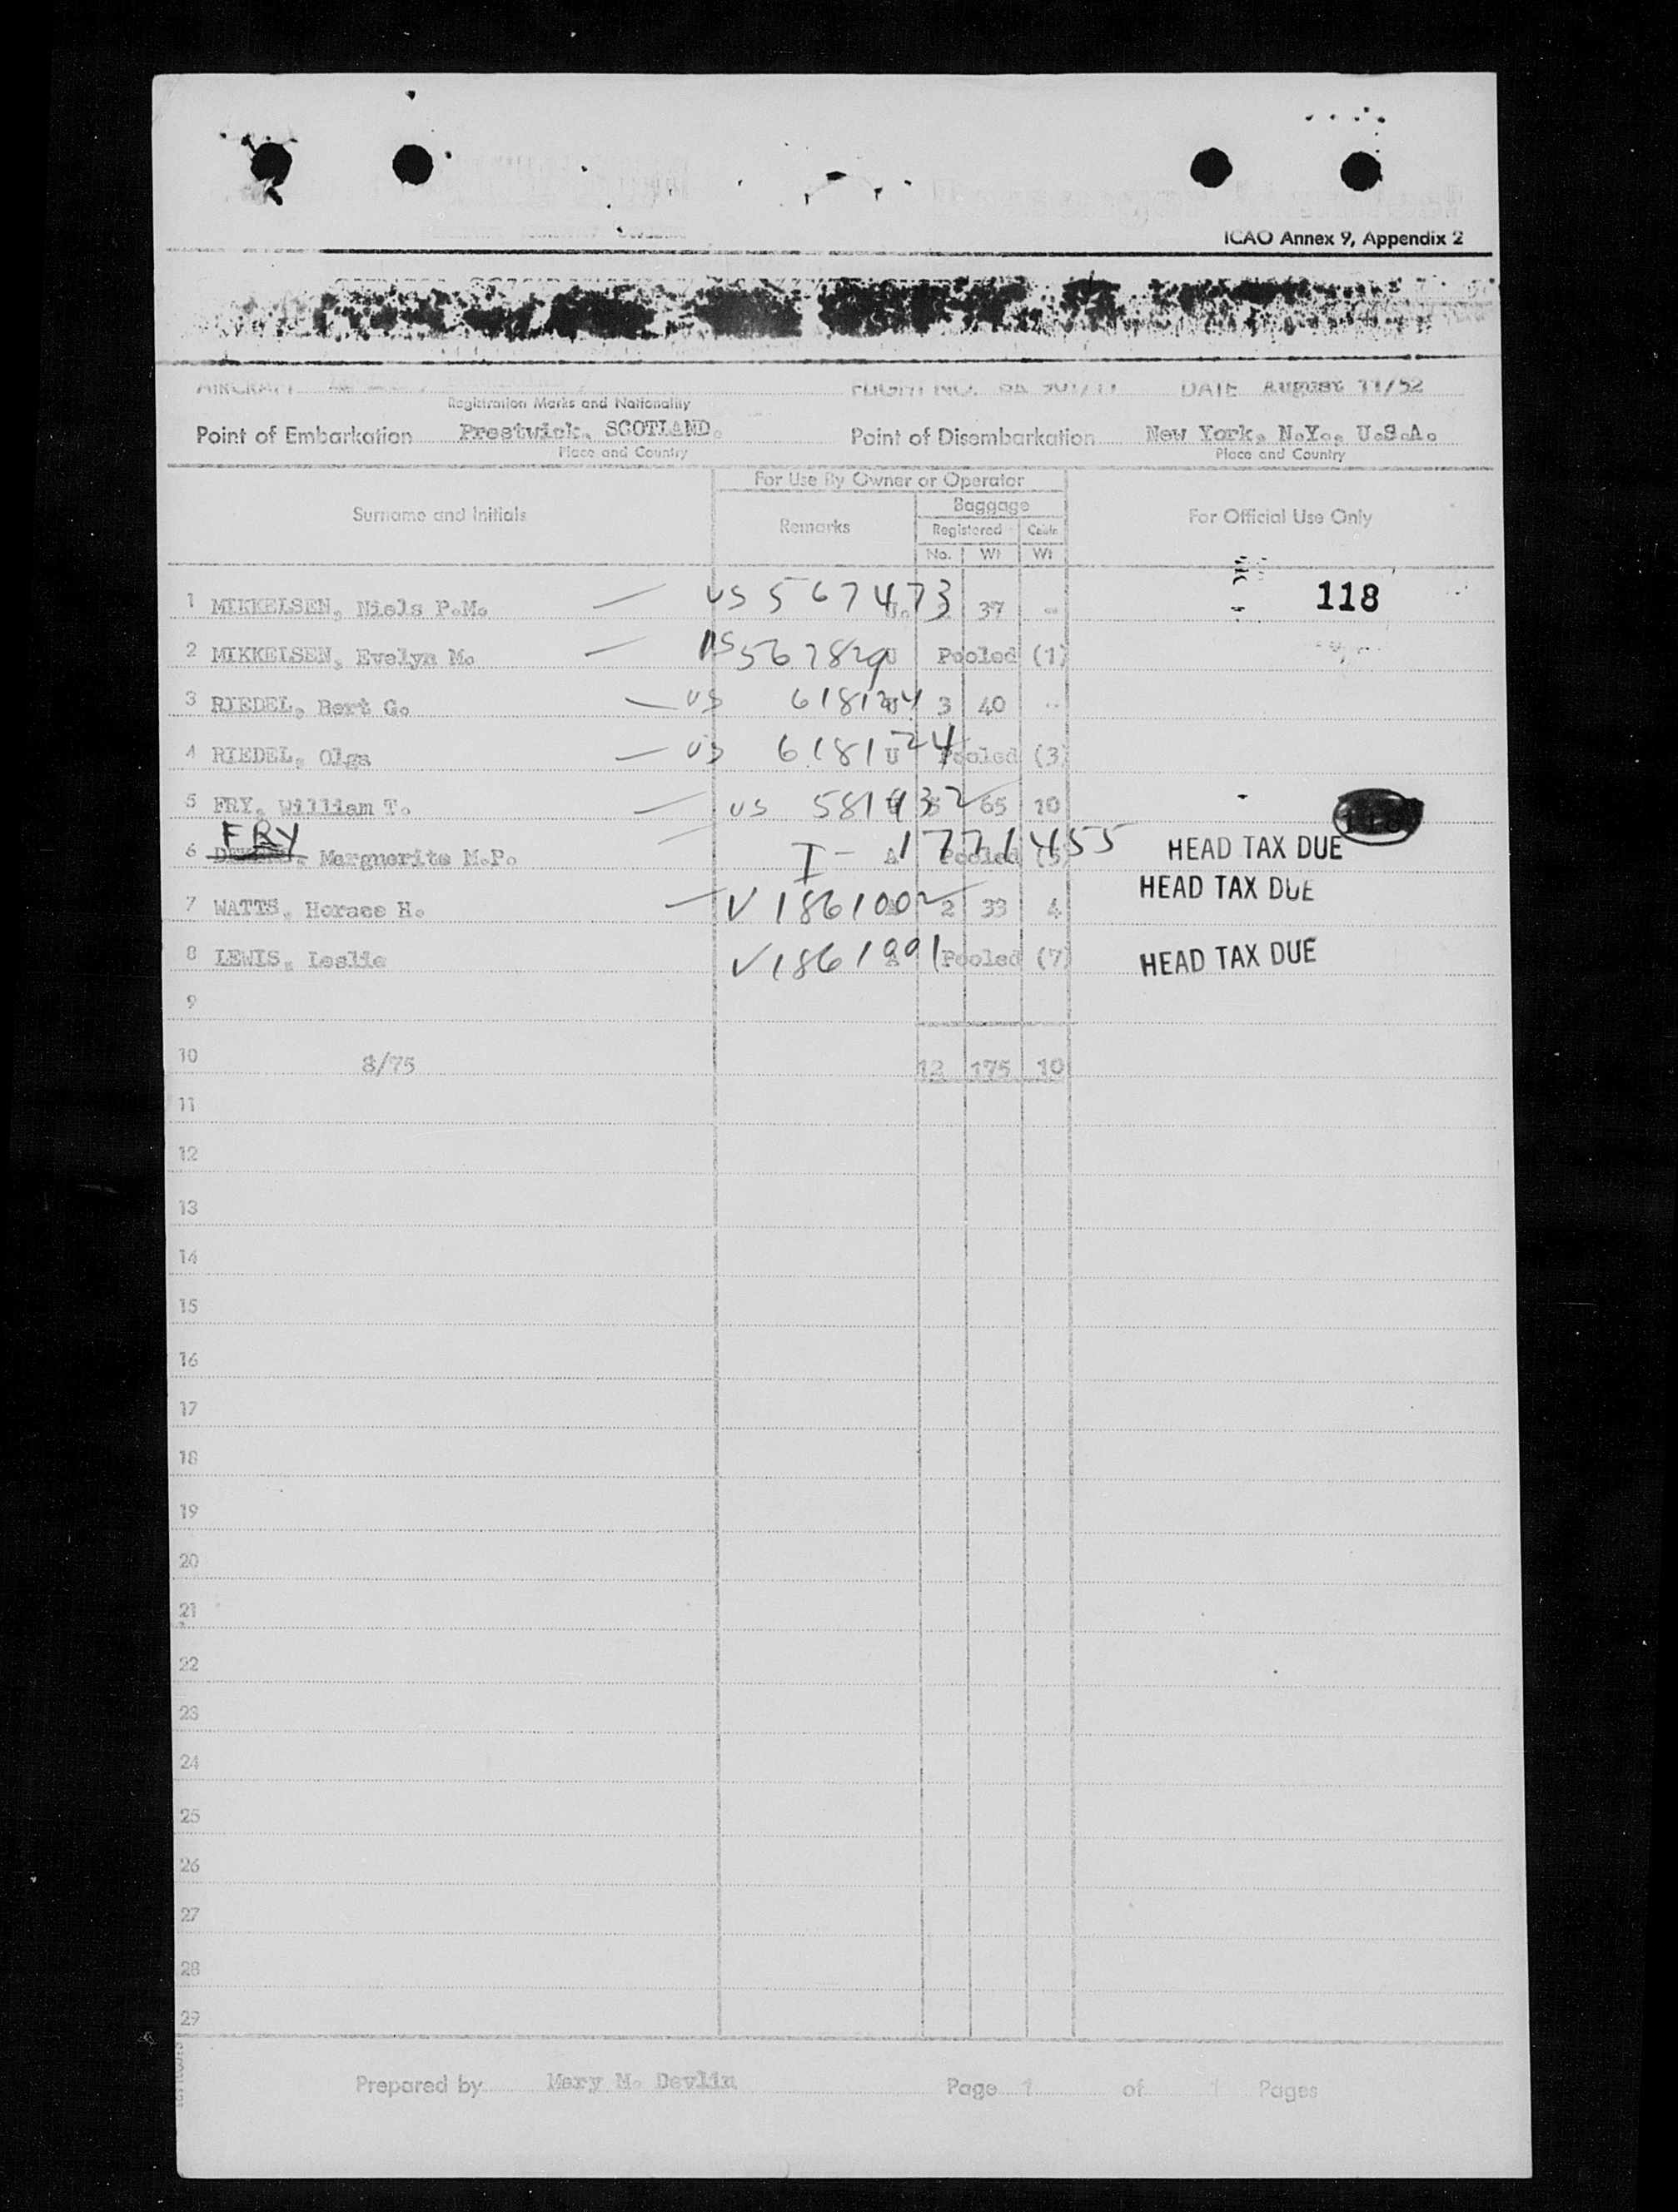 ICAO Annex 9, Appendix 2
AIRCRAFT FLIGHT NO. DATE August 11/52
Registration Marks and Nationality
Point of Embarkation Prestwick, SCOTLAND. Point of Disembarkation New York, N.Y., U.S.A.
Place and Country Place and Country
For Use By Owner or Operator
Surname and Initials Remarks Baggage For Official Use Only
Registered Cabin
No. Wt Wt
1 MIKKELSEN, Niels P.M. US 567473 37 - 118
2 MIKKELSEN, Evelyn M. US 567829 U Pooled (1)
3 RIEDEL, Bert G. US 618124 3 40 -
4 RIEDEL, Olga US 618124 U Pooled (3)
5 FRY, William T. US 581932 5 65 10
6 FRY Marguerite M.P. I-1771455 A Pooled (5) HEAD TAX DUE
7 WATTS, Horace H. V1861002 2 33 4 HEAD TAX DUE
8 LEWIS, Leslie V1861991 Pooled (7) HEAD TAX DUE
9
10 8/75 12 175 10
11
12
13
14
15
16
17
18
19
20
21
22
23
24
25
26
27
28
29
Prepared by Mary M. Devlin Page 1 of 1 Pages